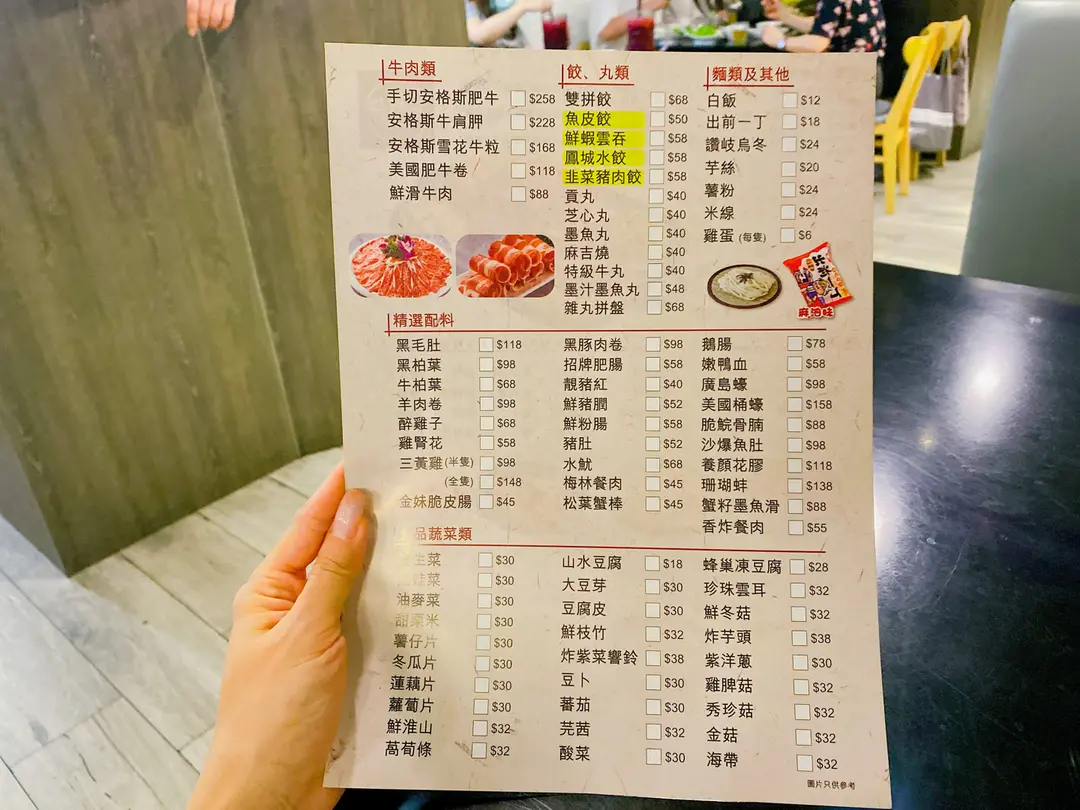 牛肉類
手切安格斯肥牛 $258
安格斯牛肩胛 $228
安格斯雪花牛粒 $168
美國肥牛卷 $118
鮮滑牛肉 $88
餃、丸類
雙拼餃 $68
魚皮餃 $50
鮮蝦雲吞 $58
鳳城水餃 $58
韭菜豬肉餃 $58
貢丸 $40
芝心丸 $40
墨魚丸 $40
麻吉燒 $40
特級牛丸 $40
墨汁墨魚丸 $48
雜丸拼盤 $68
麵類及其他
白飯 $12
出前一丁 $18
讚岐烏冬 $24
芋絲 $20
薯粉 $24
米線 $24
雞蛋 (每隻) $6
麻油味
精選配料
黑毛肚 $118
黑柏葉 $98
牛柏葉 $68
羊肉卷 $98
醉雞子 $68
雞腎花 $58
三黃雞 (半隻) $98
(全隻) $148
金妹脆皮腸 $45
黑豚肉卷 $98
招牌肥腸 $58
靚豬紅 $40
鮮豬膶 $52
鮮粉腸 $58
豬肚 $52
水魷 $68
梅林餐肉 $45
松葉蟹棒 $45
鵝腸 $78
嫩鴨血 $58
廣島蠔 $98
美國桶蠔 $158
脆鯇骨腩 $88
沙爆魚肚 $98
養顏花膠 $118
珊瑚蚌 $138
蟹籽墨魚滑 $88
香炸餐肉 $55
品蔬菜類
生菜 $30
菜 $30
油麥菜 $30
甜粟米 $30
薯仔片 $30
冬瓜片 $30
蓮藕片 $30
蘿蔔片 $30
鮮淮山 $32
萵荀條 $32
山水豆腐 $18
大豆芽 $30
豆腐皮 $30
鮮枝竹 $32
炸紫菜響鈴 $38
豆卜 $30
蕃茄 $30
芫茜 $32
酸菜 $30
蜂巢凍豆腐 $28
珍珠雲耳 $32
鮮冬菇 $32
炸芋頭 $38
紫洋蔥 $30
雞脾菇 $32
秀珍菇 $32
金菇 $32
海帶 $32
圖片只供參考